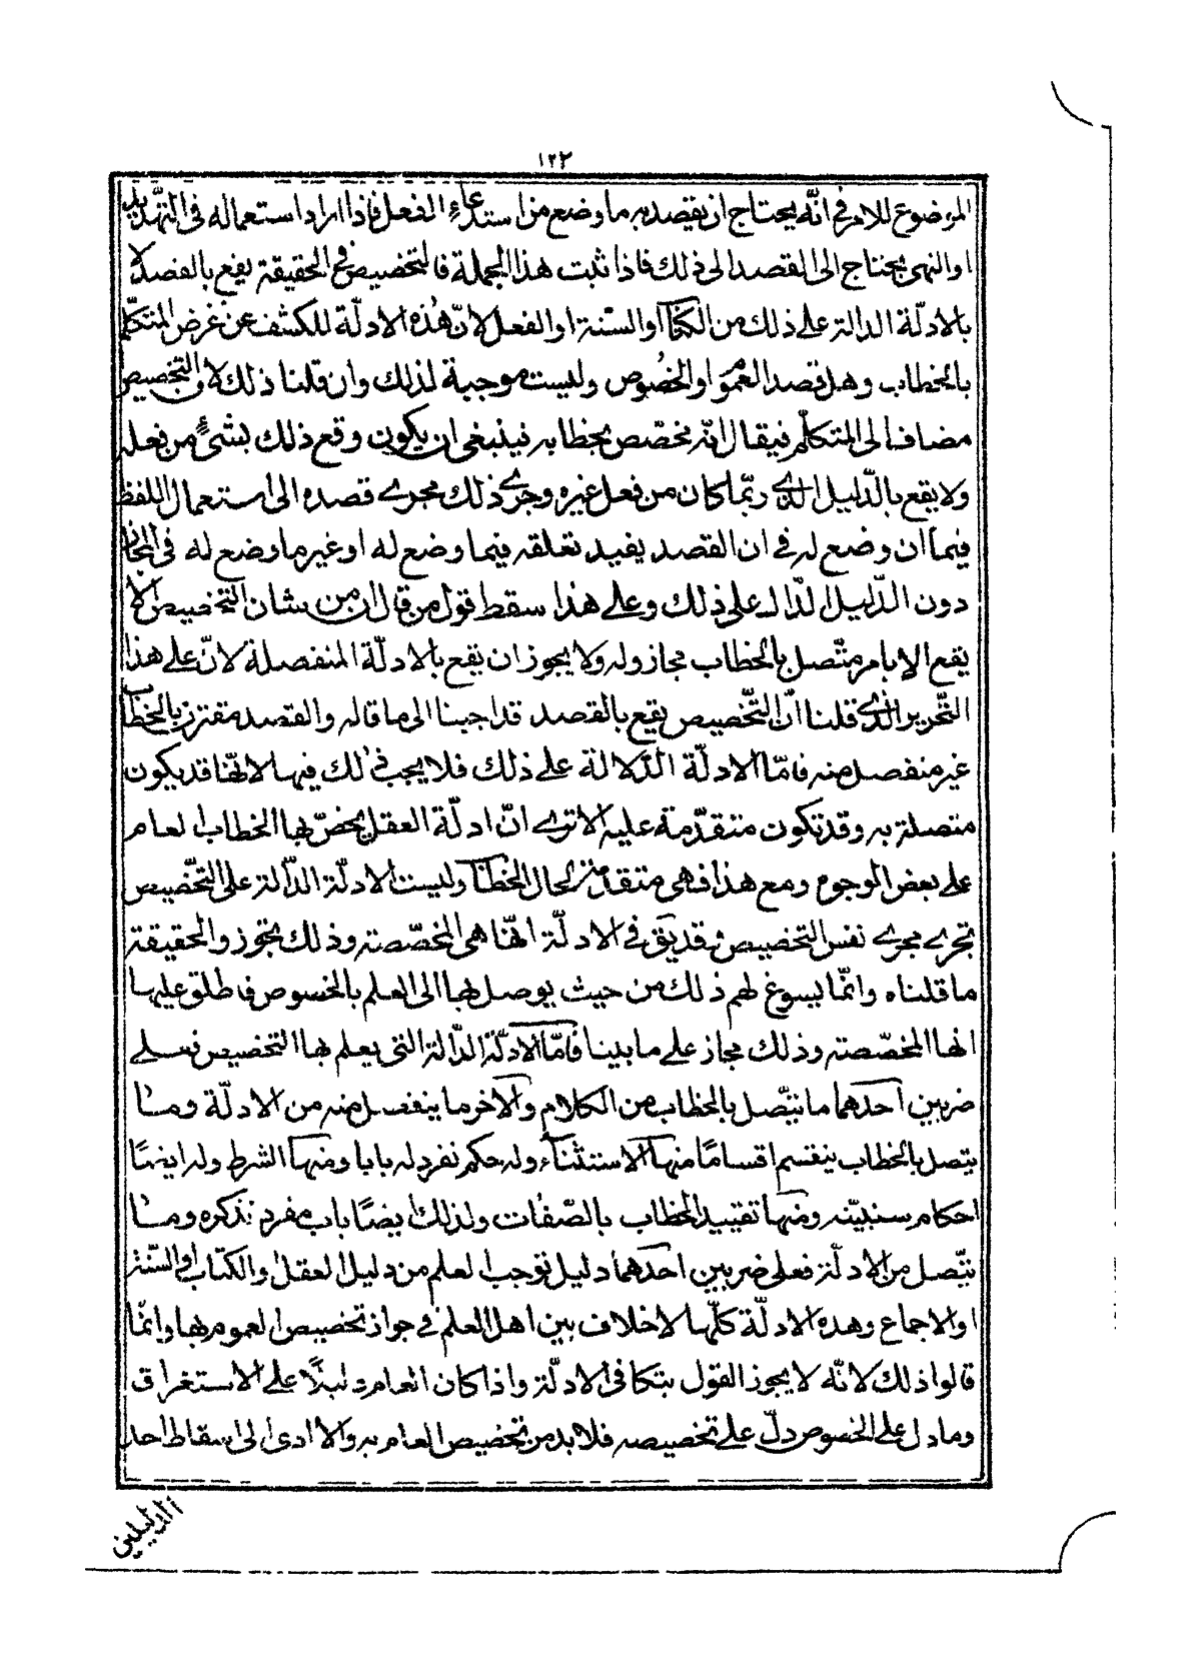 ١٢٣
الموضوع للامر في انّه يحتاج ان يقصد به ما وضع من استدعاء الفعل فاذا اراد استعماله في التهديد
او النهى يحتاج الى القصد الى ذلك فاذا ثبت هذا الجملة فالتخصيص فى الحقيقة يقع بالقصد لا
بالادلّة الدالة على ذلك من الكتاب او السّنة او الفعل لانّ هذه الادلّة للكشف عن غرض المتكلّم
بالخطاب وهل قصد العموم او الخصوص وليست موجبة لذلك وان قلنا ذلك لان التخصيص
مضاف الى المتكلّم فيقال انّه مخصّص بخطابه فينبغى ان يكون وقع ذلك بشىء من فعله
ولا يقع بالدّليل الذّى ربّما كان من فعل غيره وجرى ذلك مجرى قصده الى استعمال اللفظ
فيما ان وضع له في ان القصد يفيد تعلقه فيما وضع له او غير ما وضع له في المجاز
دون الدّليل الدّال على ذلك وعلى هذا سقط قول من قال ان من شان التخصيص الا
يقع الا بامر متّصل بالخطاب مجاز وله ولا يجوز ان يقع بالادلّة المنفصلة لانّ على هذا
التّحرير الذّى قلنا انّ التّخصيص يقع بالقصد قد اجبنا الى ما قاله والقصد مقترن بالخطاب
غير منفصل منه فامّا الادلّة الدّلالة على ذلك فلا يجب ذلك فيها لانّها قد يكون
متصلة به وقد تكون متقدّمة عليه الا ترى انّ ادلّة العقل يخصّ بها الخطاب العام
على بعض الوجوه ومع هذا فهى متقدمة لحال الخطاب وليست الادلّة الدّالة على التّخصيص
تجرى مجرى نفس التخصيص وقد يق في الادلّة انّها هى المخصّصة وذلك تجوز والحقيقة
ما قلناه وانّما يسوغ لهم ذلك من حيث يوصل بها الى العلم بالخصوص فاطلق عليها
انها المخصّصة وذلك مجاز على ما بينا فامّا الادلّة الدّالة التى يعلم بها التخصيص فعلى
ضربين احدهما ما يتّصل بالخطاب من الكلام والاخر ما ينفصل منه من الادلّة وما
يتصل بالخطاب ينقسم اقسامًا منها الاستثناء وله حكم نفرد له بابا ومنها الشرط وله ايضًا
احكام سنبيّنه ومنها تقييد الخطاب بالصّفات ولذلك ايضًا باب مفرد نذكره وما
يتّصل من الادلّة فعلى ضربين احدهما دليل توجب العلم من دليل العقل والكتاب او السّنّة
او الاجماع وهذه الادلّة كلّها لا خلاف بين اهل العلم في جواز تخصيص العموم بها وانّما
قالوا ذلك لانّه لا يجوز القول بتكافى الادلّة واذا كان العام دليلًا على الاستغراق
وما دل على الخصوص دلّ على تخصيصه فلابد من تخصيص العام به والا ادى الى اسقاط احد
الدليلين